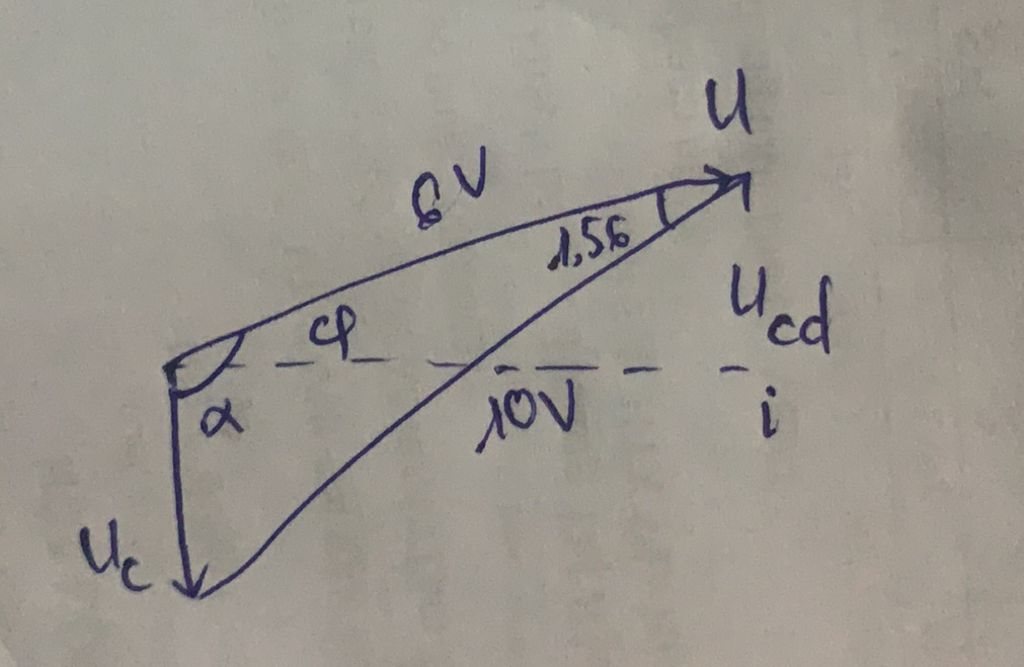 U
6V
1,56
φ
U cd
α
10V
i
Uc